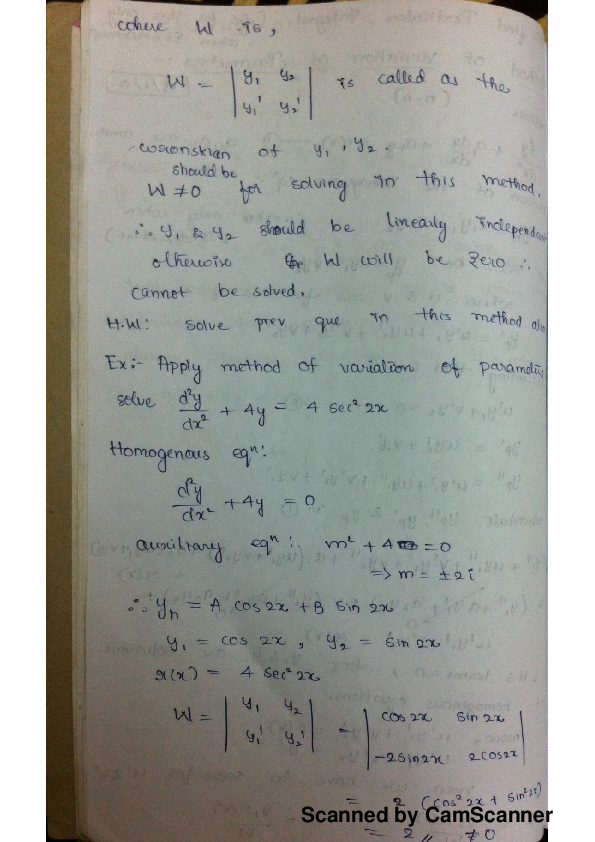 where W is,
W = | y₁ y₂ | is called as the
| y₁' y₂' |
wronskian of y₁, y₂.
should be
W ≠ 0 for solving in this method.
∴ y₁ & y₂ should be linearly independant
otherwise W will be zero ∴
cannot be solved.
H.W: solve prev que in this method also
Ex:- Apply method of variation of parameters
solve d²y/dx² + 4y = 4 sec² 2x
Homogenous eqⁿ:
d²y/dx² + 4y = 0
auxilrary eqⁿ: m² + 4 = 0
=> m = ± 2i
∴ yₕ = A cos 2x + B sin 2x
y₁ = cos 2x , y₂ = sin 2x
r(x) = 4 sec² 2x
W = | y₁ y₂ | = | cos 2x sin 2x |
| y₁' y₂' | | -2sin2x 2cos2x |
= 2 (cos² 2x + sin² 2x)
= 2 // ≠ 0
Scanned by CamScanner